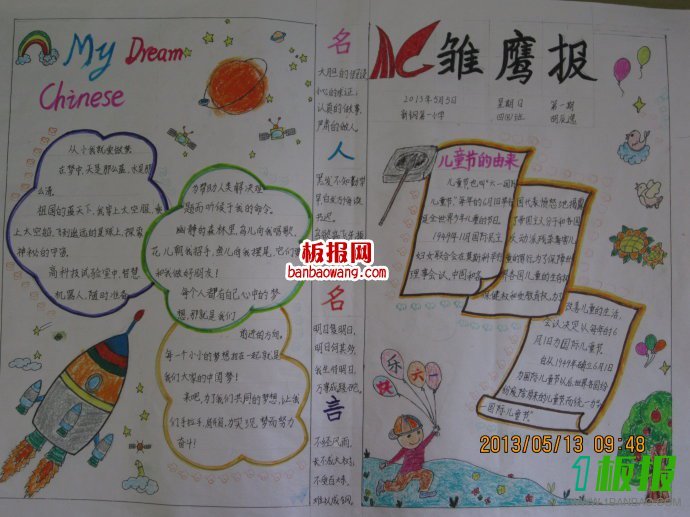 My Dream
Chinese
从小我就爱做梦
在梦中,天是那么蓝,水是那
么清
祖国的蓝天下,我穿上太空服,乘
上太空船,飞到遥远的星球上,探索
神秘的宇宙
高科技试验室中,智慧
机器人,随时准备
为帮助人类解决难
题而听候于我的命令。
幽静的森林里,鸟儿向我唱歌,
花儿朝我招手,鱼儿向我摆尾,它们
和我做好朋友!
每个人都有自己心中的梦
想,那就是我们
前进的方向。
每一个小小的梦想拼在一起就是
我们大家的中国梦!
来吧,为了我们共同的梦想,让我
们手拉手,肩并肩,为实现梦而努力
奋斗!
板报网
banbaowang.com
名
大胆的假设
小心的求证;
认真的做事,
严肃的做人。
人
黑发不知勤学
早
读书迟。
名
明日复明日,
明日何其多,
我生待明日,
万事成蹉跎。
言
不经风雨,
长不成大树;
不受百炼,
难以成钢。
雏鹰报
2013年5月5日
星期日
第一期
新钢第一小学
儿童节的由来
儿童节也叫“六一国际
儿童节”每年的6月1日举行
是全世界少年儿童的节日。
1949年11月国际民主
妇女联合会在莫斯科举行
理事会议,中国和各
国代表愤怒地揭露
了帝国主义分子和各国
反动派残杀毒害儿
童的罪行,为了保障世
界各国儿童的生存权
保健权和受教育权,为了
改善儿童的生活,
会议决定以每年的6
月1日为国际儿童节
自从1949年确立6月1日
为国际儿童节以后,世界各国纷
纷废除原来的儿童节而统一为“
国际儿童节”
快乐六一
2013/05/13 09:48
1板报
WWW.1BANBAO.COM